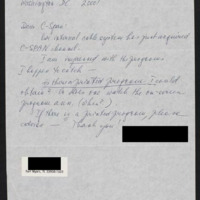 Washington DC 20001
Dear C-Span:
Our internal cable system has just acquired
C-SPAN channel.
I am impressed with the programs
I happen to catch —
Is there a printed program I could
obtain? Or does one watch the on-screen
program
If there is a printed program, please
— Thank you!